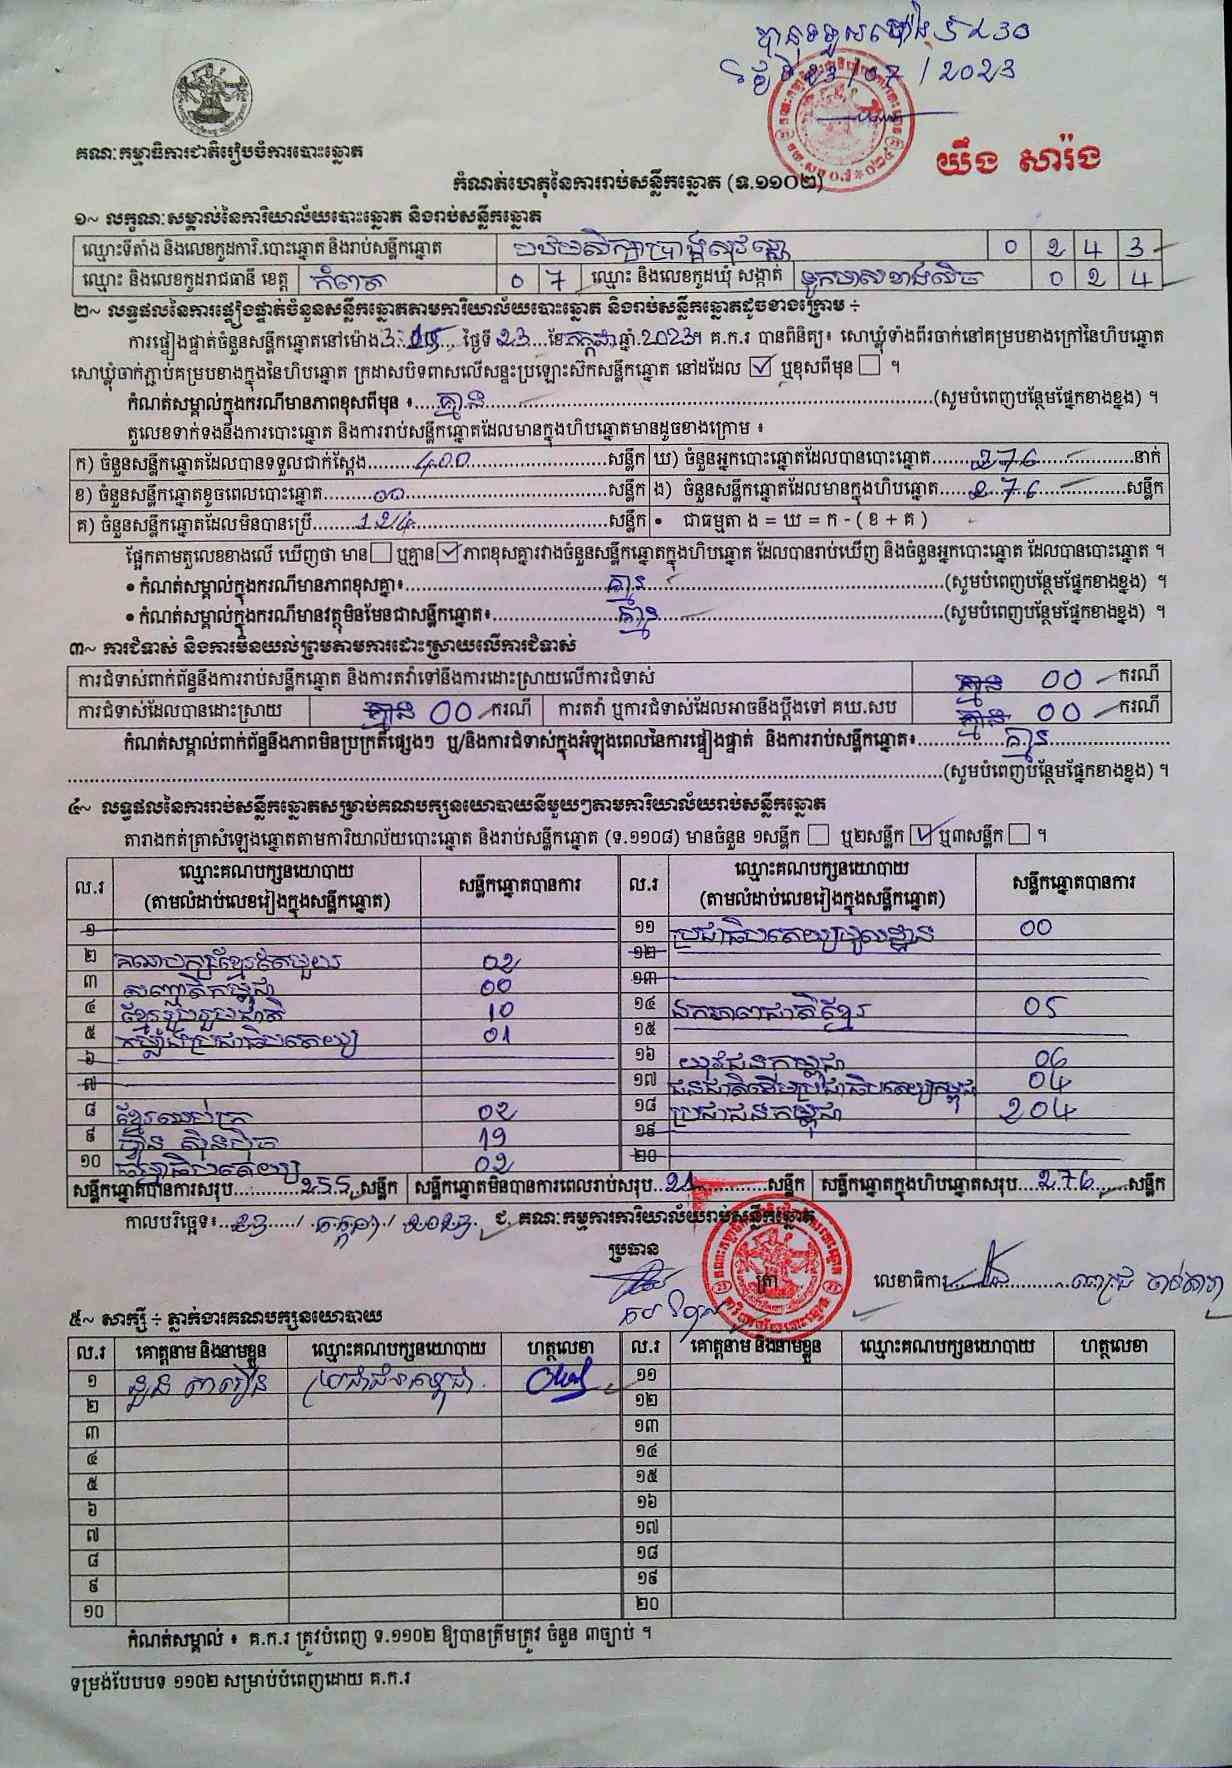 ថ្ងៃទី 23 / 07 / 2023
គណៈកម្មាធិការជាតិរៀបចំការបោះឆ្នោត
យឹង សារ៉ង
កំណត់ហេតុនៃការរាប់សន្លឹកឆ្នោត (ទ.១១០២)
១~ លក្ខណៈសម្គាល់នៃការិយាល័យបោះឆ្នោត និងរាប់សន្លឹកឆ្នោត
ឈ្មោះទីតាំង និងលេខកូដការិ.បោះឆ្នោត និងរាប់សន្លឹកឆ្នោត 0 2 4 3
ឈ្មោះ និងលេខកូដរាជធានី ខេត្ត កំពត 0 7 ឈ្មោះ និងលេខកូដឃុំ សង្កាត់ ទូកមាសខាងលិច 0 2 4
២~ លទ្ធផលនៃការផ្ទៀងផ្ទាត់ចំនួនសន្លឹកឆ្នោតតាមការិយាល័យបោះឆ្នោត និងរាប់សន្លឹកឆ្នោតដូចខាងក្រោម ÷
ការផ្ទៀងផ្ទាត់ចំនួនសន្លឹកឆ្នោតនៅម៉ោង ថ្ងៃទី 23 ខែ កក្កដា ឆ្នាំ 2023។ គ.ក.រ បានពិនិត្យ៖ សោឃ្លុំទាំងពីរចាក់នៅគម្របខាងក្រៅនៃហិបឆ្នោត
សោឃ្លុំចាក់ភ្ជាប់គម្របខាងក្នុងនៃហិបឆ្នោត ក្រដាសបិទពាសលើសន្ទះប្រឡោះស៊កសន្លឹកឆ្នោត នៅដដែល ☑ ឬខុសពីមុន ☐ ។
កំណត់សម្គាល់ក្នុងករណីមានភាពខុសពីមុន ៖ គ្មាន (សូមបំពេញបន្ថែមផ្នែកខាងខ្នង) ។
តួលេខទាក់ទងនឹងការបោះឆ្នោត និងការរាប់សន្លឹកឆ្នោតដែលមានក្នុងហិបឆ្នោតមានដូចខាងក្រោម ៖
ក) ចំនួនសន្លឹកឆ្នោតដែលបានទទួលជាក់ស្តែង 400 សន្លឹក ឃ) ចំនួនអ្នកបោះឆ្នោតដែលបានបោះឆ្នោត 276 នាក់
ខ) ចំនួនសន្លឹកឆ្នោតខូចពេលបោះឆ្នោត 00 សន្លឹក ង) ចំនួនសន្លឹកឆ្នោតដែលមានក្នុងហិបឆ្នោត 276 សន្លឹក
គ) ចំនួនសន្លឹកឆ្នោតដែលមិនបានប្រើ 124 សន្លឹក • ជាធម្មតា ង = ឃ = ក - ( ខ + គ )
ផ្អែកតាមតួលេខខាងលើ ឃើញថា មាន ☐ ឬគ្មាន ☑ ភាពខុសគ្នារវាងចំនួនសន្លឹកឆ្នោតក្នុងហិបឆ្នោត ដែលបានរាប់ឃើញ និងចំនួនអ្នកបោះឆ្នោត ដែលបានបោះឆ្នោត ។
• កំណត់សម្គាល់ក្នុងករណីមានភាពខុសគ្នា៖ គ្មាន (សូមបំពេញបន្ថែមផ្នែកខាងខ្នង) ។
• កំណត់សម្គាល់ក្នុងករណីមានវត្ថុមិនមែនជាសន្លឹកឆ្នោត៖ គ្មាន (សូមបំពេញបន្ថែមផ្នែកខាងខ្នង) ។
៣~ ការជំទាស់ និងការមិនយល់ព្រមតាមការដោះស្រាយលើការជំទាស់
ការជំទាស់ពាក់ព័ន្ធនឹងការរាប់សន្លឹកឆ្នោត និងការតវ៉ាទៅនឹងការដោះស្រាយលើការជំទាស់ គ្មាន 00 ករណី
ការជំទាស់ដែលបានដោះស្រាយ គ្មាន 00 ករណី ការតវ៉ា ឬការជំទាស់ដែលអាចនឹងប្តឹងទៅ គឃ.សប គ្មាន 00 ករណី
កំណត់សម្គាល់ពាក់ព័ន្ធនឹងភាពមិនប្រក្រតីផ្សេងៗ ឬ/និងការជំទាស់ក្នុងអំឡុងពេលនៃការផ្ទៀងផ្ទាត់ និងការរាប់សន្លឹកឆ្នោត៖ គ្មាន
(សូមបំពេញបន្ថែមផ្នែកខាងខ្នង) ។
៤~ លទ្ធផលនៃការរាប់សន្លឹកឆ្នោតសម្រាប់គណបក្សនយោបាយនីមួយៗតាមការិយាល័យរាប់សន្លឹកឆ្នោត
តារាងកត់ត្រាសំឡេងឆ្នោតតាមការិយាល័យបោះឆ្នោត និងរាប់សន្លឹកឆ្នោត (ទ.១១០៨) មានចំនួន ១សន្លឹក ☐ ឬ២សន្លឹក ☑ ឬ៣សន្លឹក ☐ ។
ល.រ ឈ្មោះគណបក្សនយោបាយ (តាមលំដាប់លេខរៀងក្នុងសន្លឹកឆ្នោត) សន្លឹកឆ្នោតបានការ ល.រ ឈ្មោះគណបក្សនយោបាយ (តាមលំដាប់លេខរៀងក្នុងសន្លឹកឆ្នោត) សន្លឹកឆ្នោតបានការ
១ ១១ ប្រជាធិបតេយ្យមូលដ្ឋាន 00
២ គណបក្សខ្មែរតែមួយ 02 ១២
៣ សញ្ជាតិកម្ពុជា 00 ១៣
៤ ខ្មែររួបរួមជាតិ 10 ១៤ ឯកភាពជាតិខ្មែរ 05
៥ កម្លាំងប្រជាធិបតេយ្យ 01 ១៥
៦ ១៦ យុវជនកម្ពុជា 06
៧ ១៧ ជនជាតិដើមប្រជាធិបតេយ្យកម្ពុជា 04
៨ ខ្មែរឈប់ក្រ 02 ១៨ ប្រជាជនកម្ពុជា 204
៩ ហ្វ៊ុនស៊ិនប៉ិច 19 ១៩
១០ ធម្មាធិបតេយ្យ 02 ២០
សន្លឹកឆ្នោតបានការសរុប 255 សន្លឹក សន្លឹកឆ្នោតមិនបានការពេលរាប់សរុប 21 សន្លឹក សន្លឹកឆ្នោតក្នុងហិបឆ្នោតសរុប 276 សន្លឹក
កាលបរិច្ឆេទ៖ 23 / កក្កដា / 2023 ជ. គណៈកម្មការការិយាល័យរាប់សន្លឹកឆ្នោត
ប្រធាន ត្រា លេខាធិការ
៥~ សាក្សី ÷ ភ្នាក់ងារគណបក្សនយោបាយ
ល.រ គោត្តនាម និងនាមខ្លួន ឈ្មោះគណបក្សនយោបាយ ហត្ថលេខា ល.រ គោត្តនាម និងនាមខ្លួន ឈ្មោះគណបក្សនយោបាយ ហត្ថលេខា
១ ប្រជាជនកម្ពុជា ១១
២ ១២
៣ ១៣
៤ ១៤
៥ ១៥
៦ ១៦
៧ ១៧
៨ ១៨
៩ ១៩
១០ ២០
កំណត់សម្គាល់ ៖ គ.ក.រ ត្រូវបំពេញ ទ.១១០២ ឱ្យបានត្រឹមត្រូវ ចំនួន ៣ច្បាប់ ។
ទម្រង់បែបបទ ១១០២ សម្រាប់បំពេញដោយ គ.ក.រ